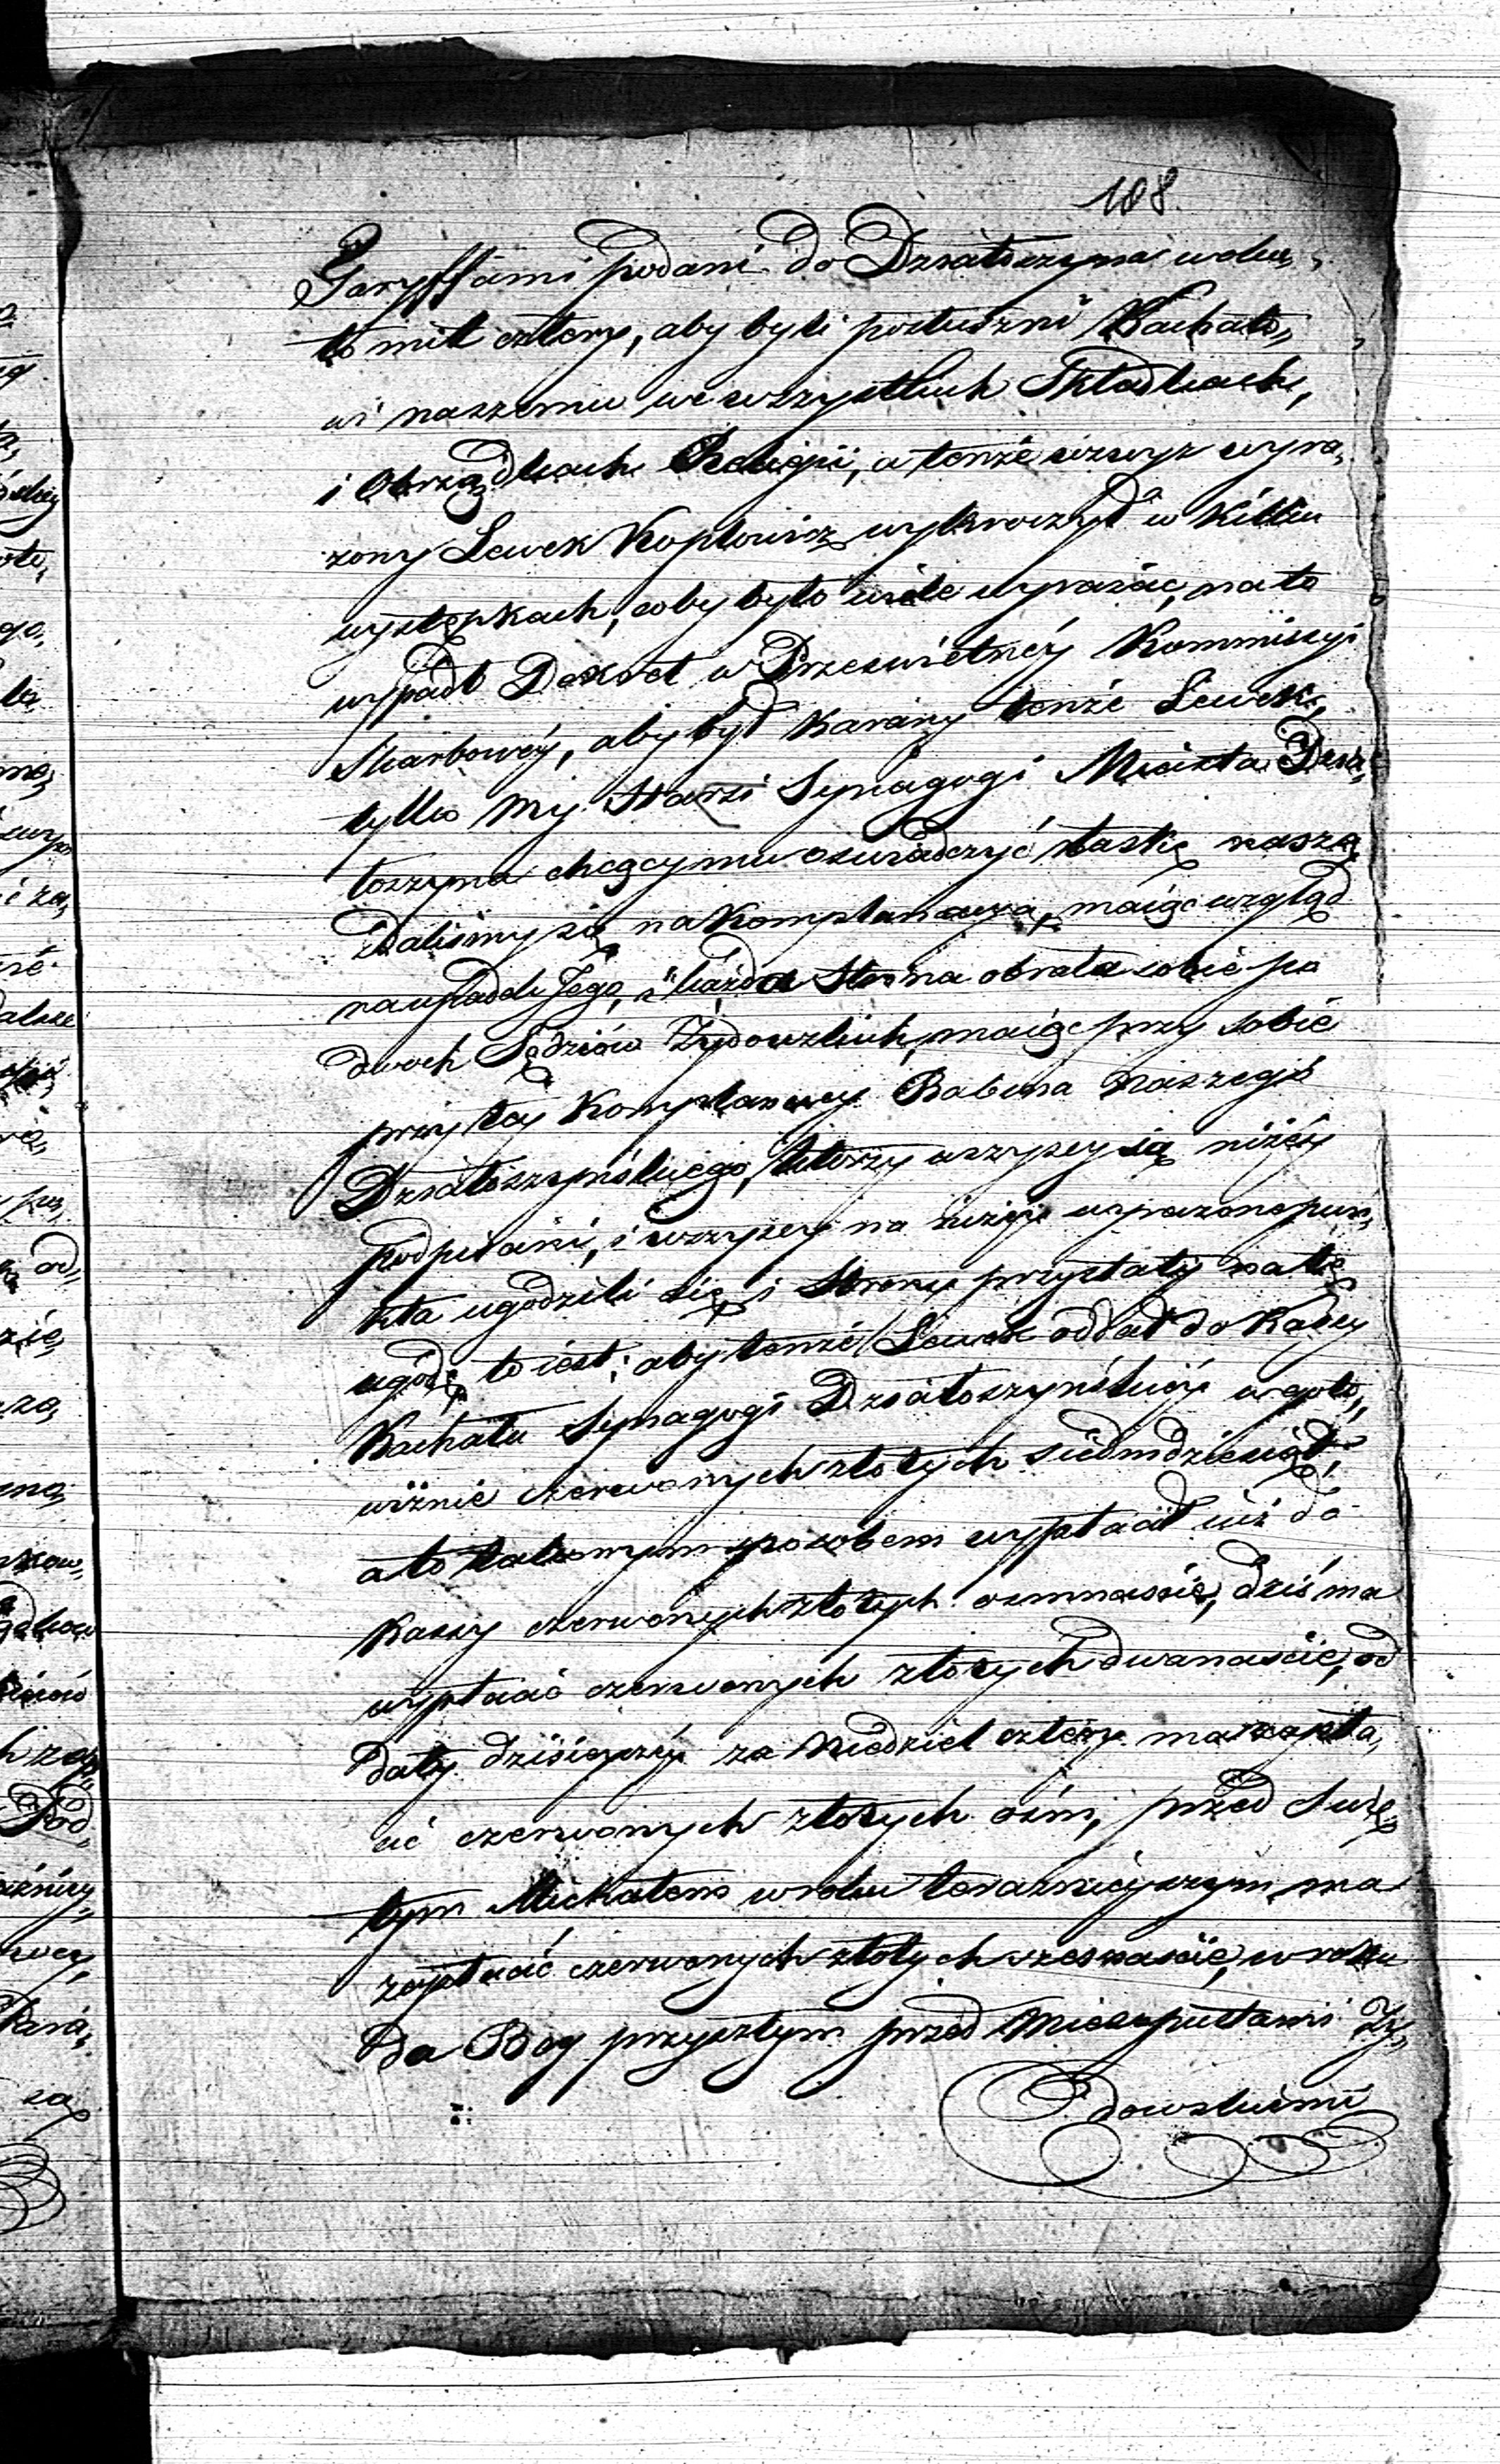 108.
Taryffami podani do Działoszyna woku„
ło mil cztery, aby byli posłuszni Kachało„
wi naszemu we wszystkich Składkach,
i Obrządkach Religii, a tenże wzwyż wyra„
żony Lewek Koplowicz wykroczył w kilku
występkach, coby było wiele wyrażać, na to
wypadł Dekret w Prześwietnéy Kommissyi
Skarbowéy, aby był karany tenże Lewek,
tylko my Starsi Synagogi Miasta Dzia„
łoszyna chcąc mu oswiadczyć łaskę naszą
zdaliśmy się na Komplanacyą, maiąc wzgląd
na upadek Jego, i każda Strona obrała sobie po
dwoch Sędziów Żydowskich, maiąc przy sobie
przy tey Komplanacyi Rabina naszego
Działoszyńskiego, którzy wszyscy są niżéy
podpisani, i wszyscy na niżéy wyrażone pun„
kta ugodzili się, i Strony przystały na tę
ugodę, to iest: aby tenże Lewek oddał do Kassy
Kachału Synagogi Działoszyńskiéy w goto„
wiźnie czerwonych złotych siedmdziesiąt,
a to takowym sposobem wypłacił iuż do
Kassy czerwonych złotych osmnaście, dziś ma
wypłacić czerwonych złotych dwanaście, od
daty dzisieyszéy za Niedziel cztery ma zapła„
cić czerwonych złotych ośm, przed Swię„
tym Michałem w roku teraźnieyszym ma
zapłacić czerwonych złotych szesnaście, w roku
da Bog przyszłym przed Miesopustami Ży„
dowskiemi